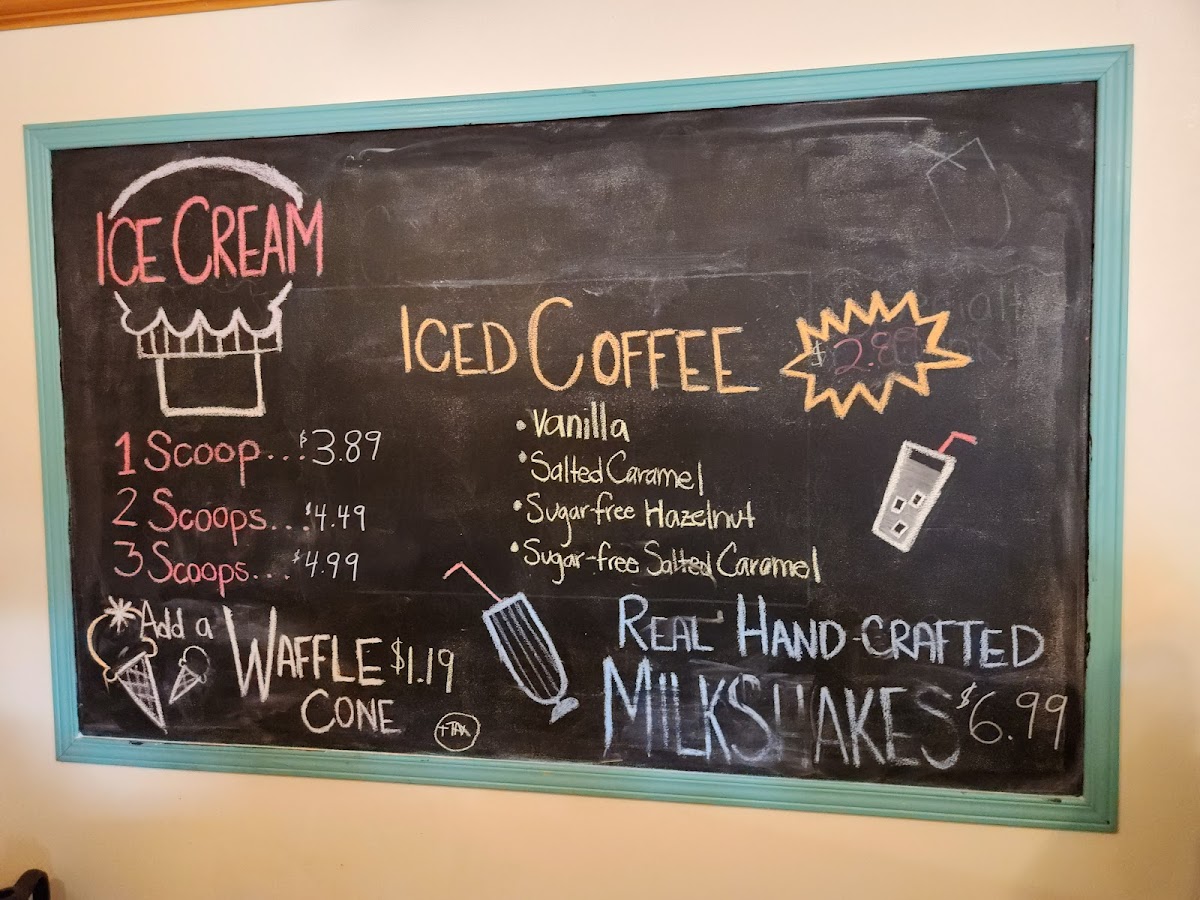 ICE CREAM
1 Scoop...$3.89
2 Scoops...$4.49
3 Scoops...$4.99
*Add a WAFFLE $1.19
CONE
+TAX
ICED COFFEE
$2.89
• Vanilla
• Salted Caramel
• Sugar-free Hazelnut
• Sugar-free Salted Caramel
REAL HAND-CRAFTED
MILKSHAKES $6.99